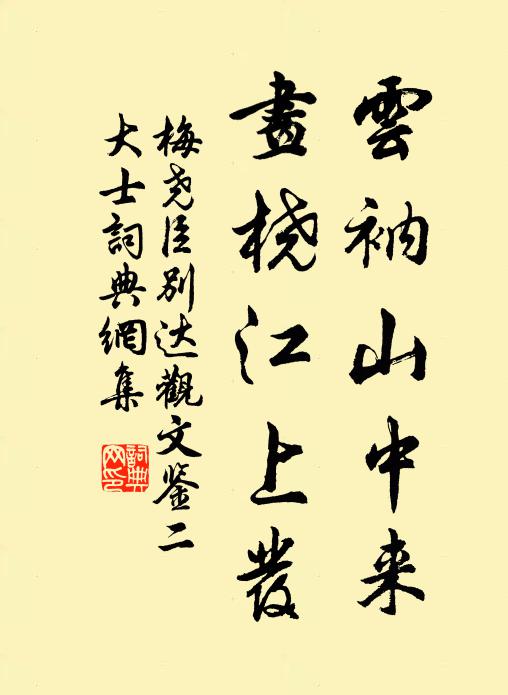 雲衲山中来
畫橈江上發
梅尧臣别达觀文鉴二
大士詞典網集
詞典網印